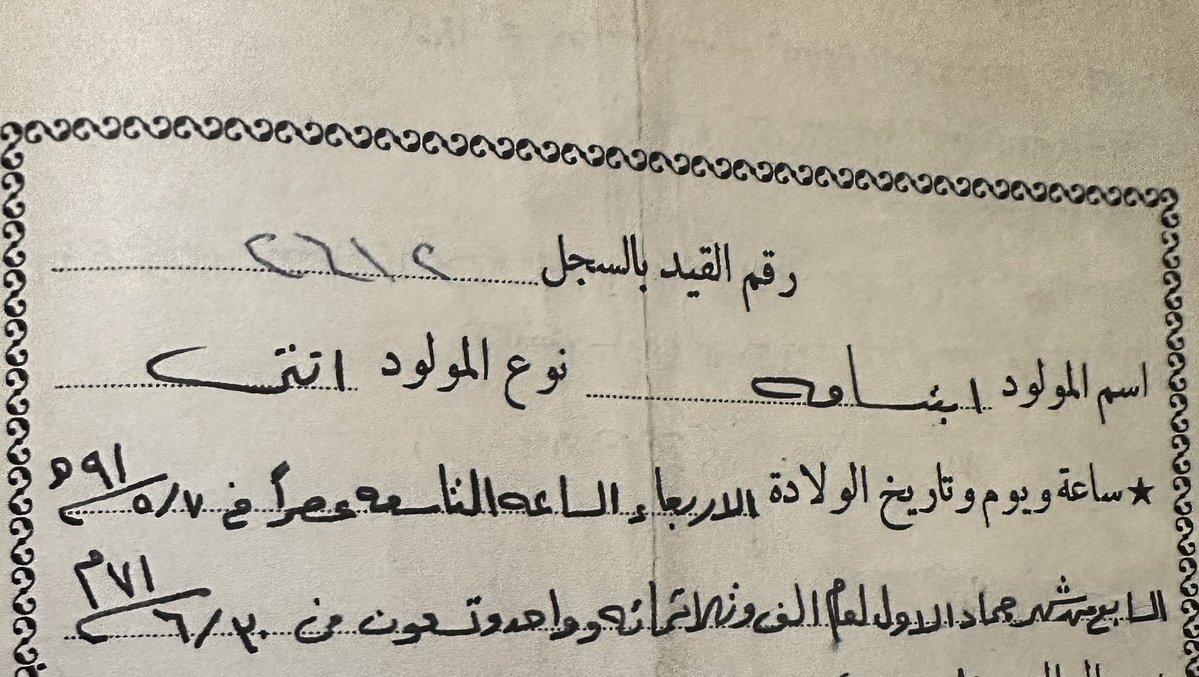 رقم القيد بالسجل ٢٦١٢
اسم المولود ابتسامه نوع المولود انثى
★ ساعة ويوم وتاريخ الولادة الاربعاء الساعه التاسعه عصراً في ٥/٧/٩١ ه
السابع من شهر جماد الاول لعام الف وثلاثمائه وواحد وتسعون من ٦/٣٠/٧١ م